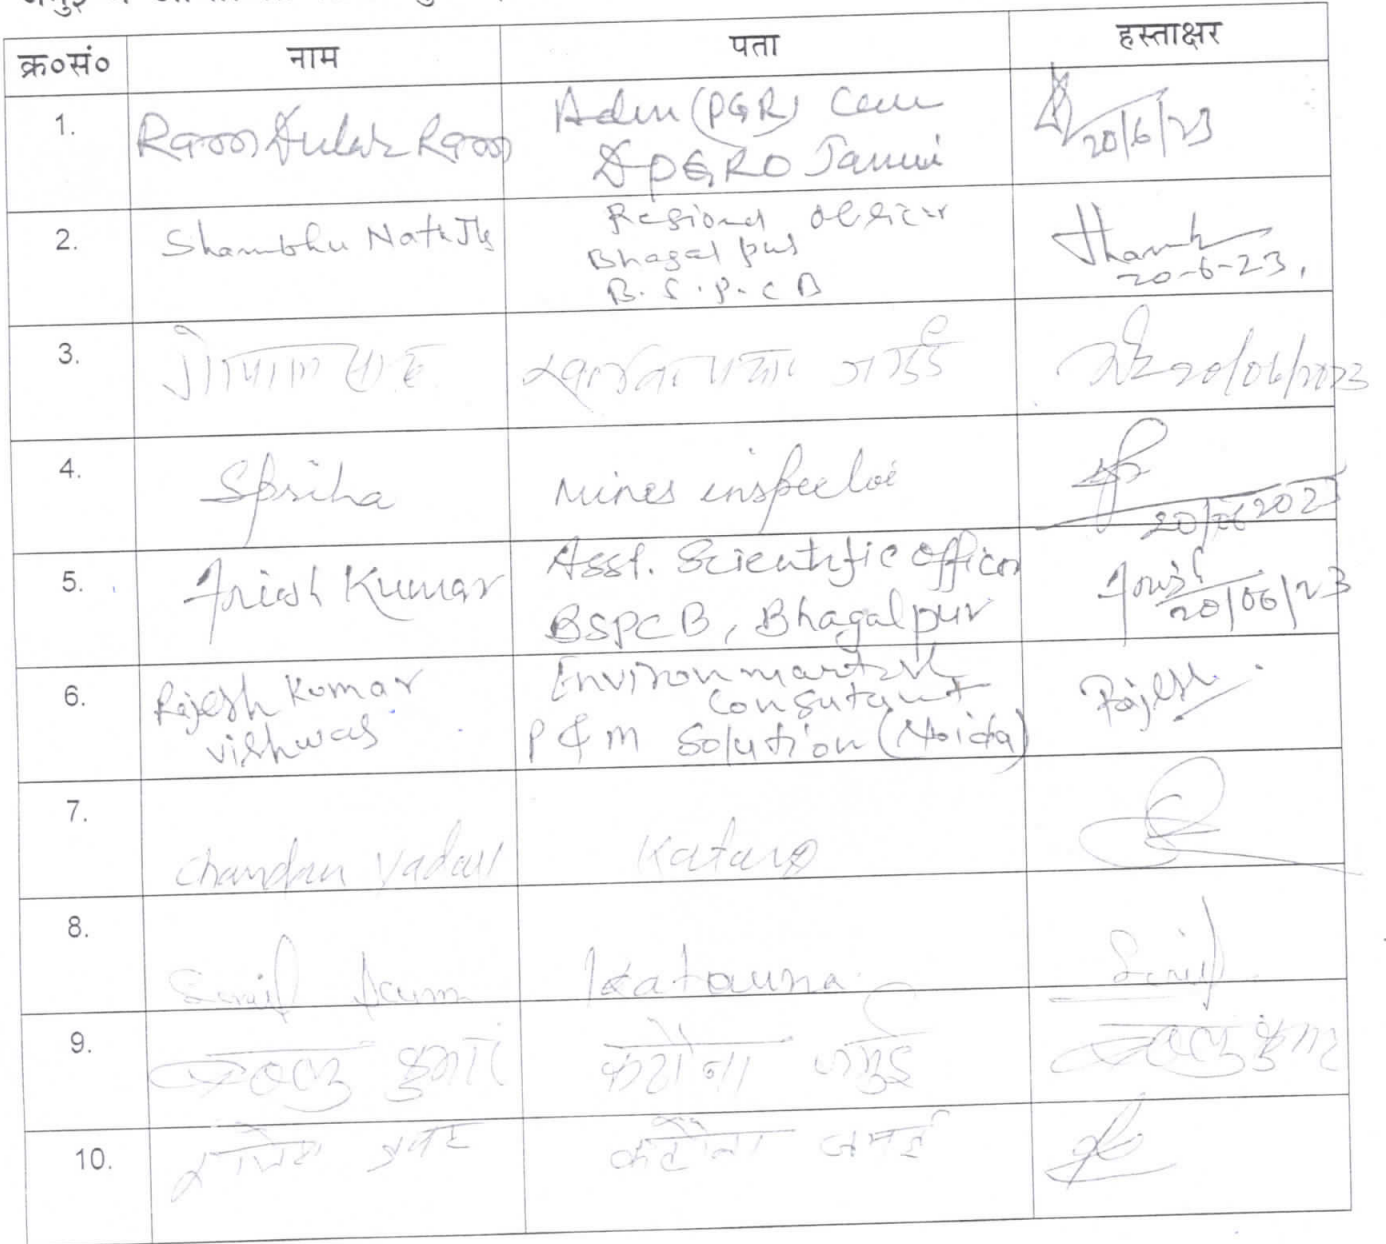 क्र०सं० नाम पता हस्ताक्षर
1. Ram Dular Ram Adm (PGR) Cum
DPGRO Jamui 20/6/23
2. Shambhu Nath Jha Regional Officer
Bhagalpur
B.S.P.C.B 20-6-23,
3. गोपाल साह 20/06/2023
4. Spriha Mines inspector 20/06/2023
5. Anish Kumar Asst. Scientific Officer
BSPCB, Bhagalpur 20/06/23
6. Rajesh Kumar
Vishwas Environmantal
Consutant
P & M Solution (Noida) Rajesh
7. Chandan Yadav
8. Sunil Kum Katauna Sunil
9. कुमार कटौना जमुई कुमार
10. कटौना जमुई